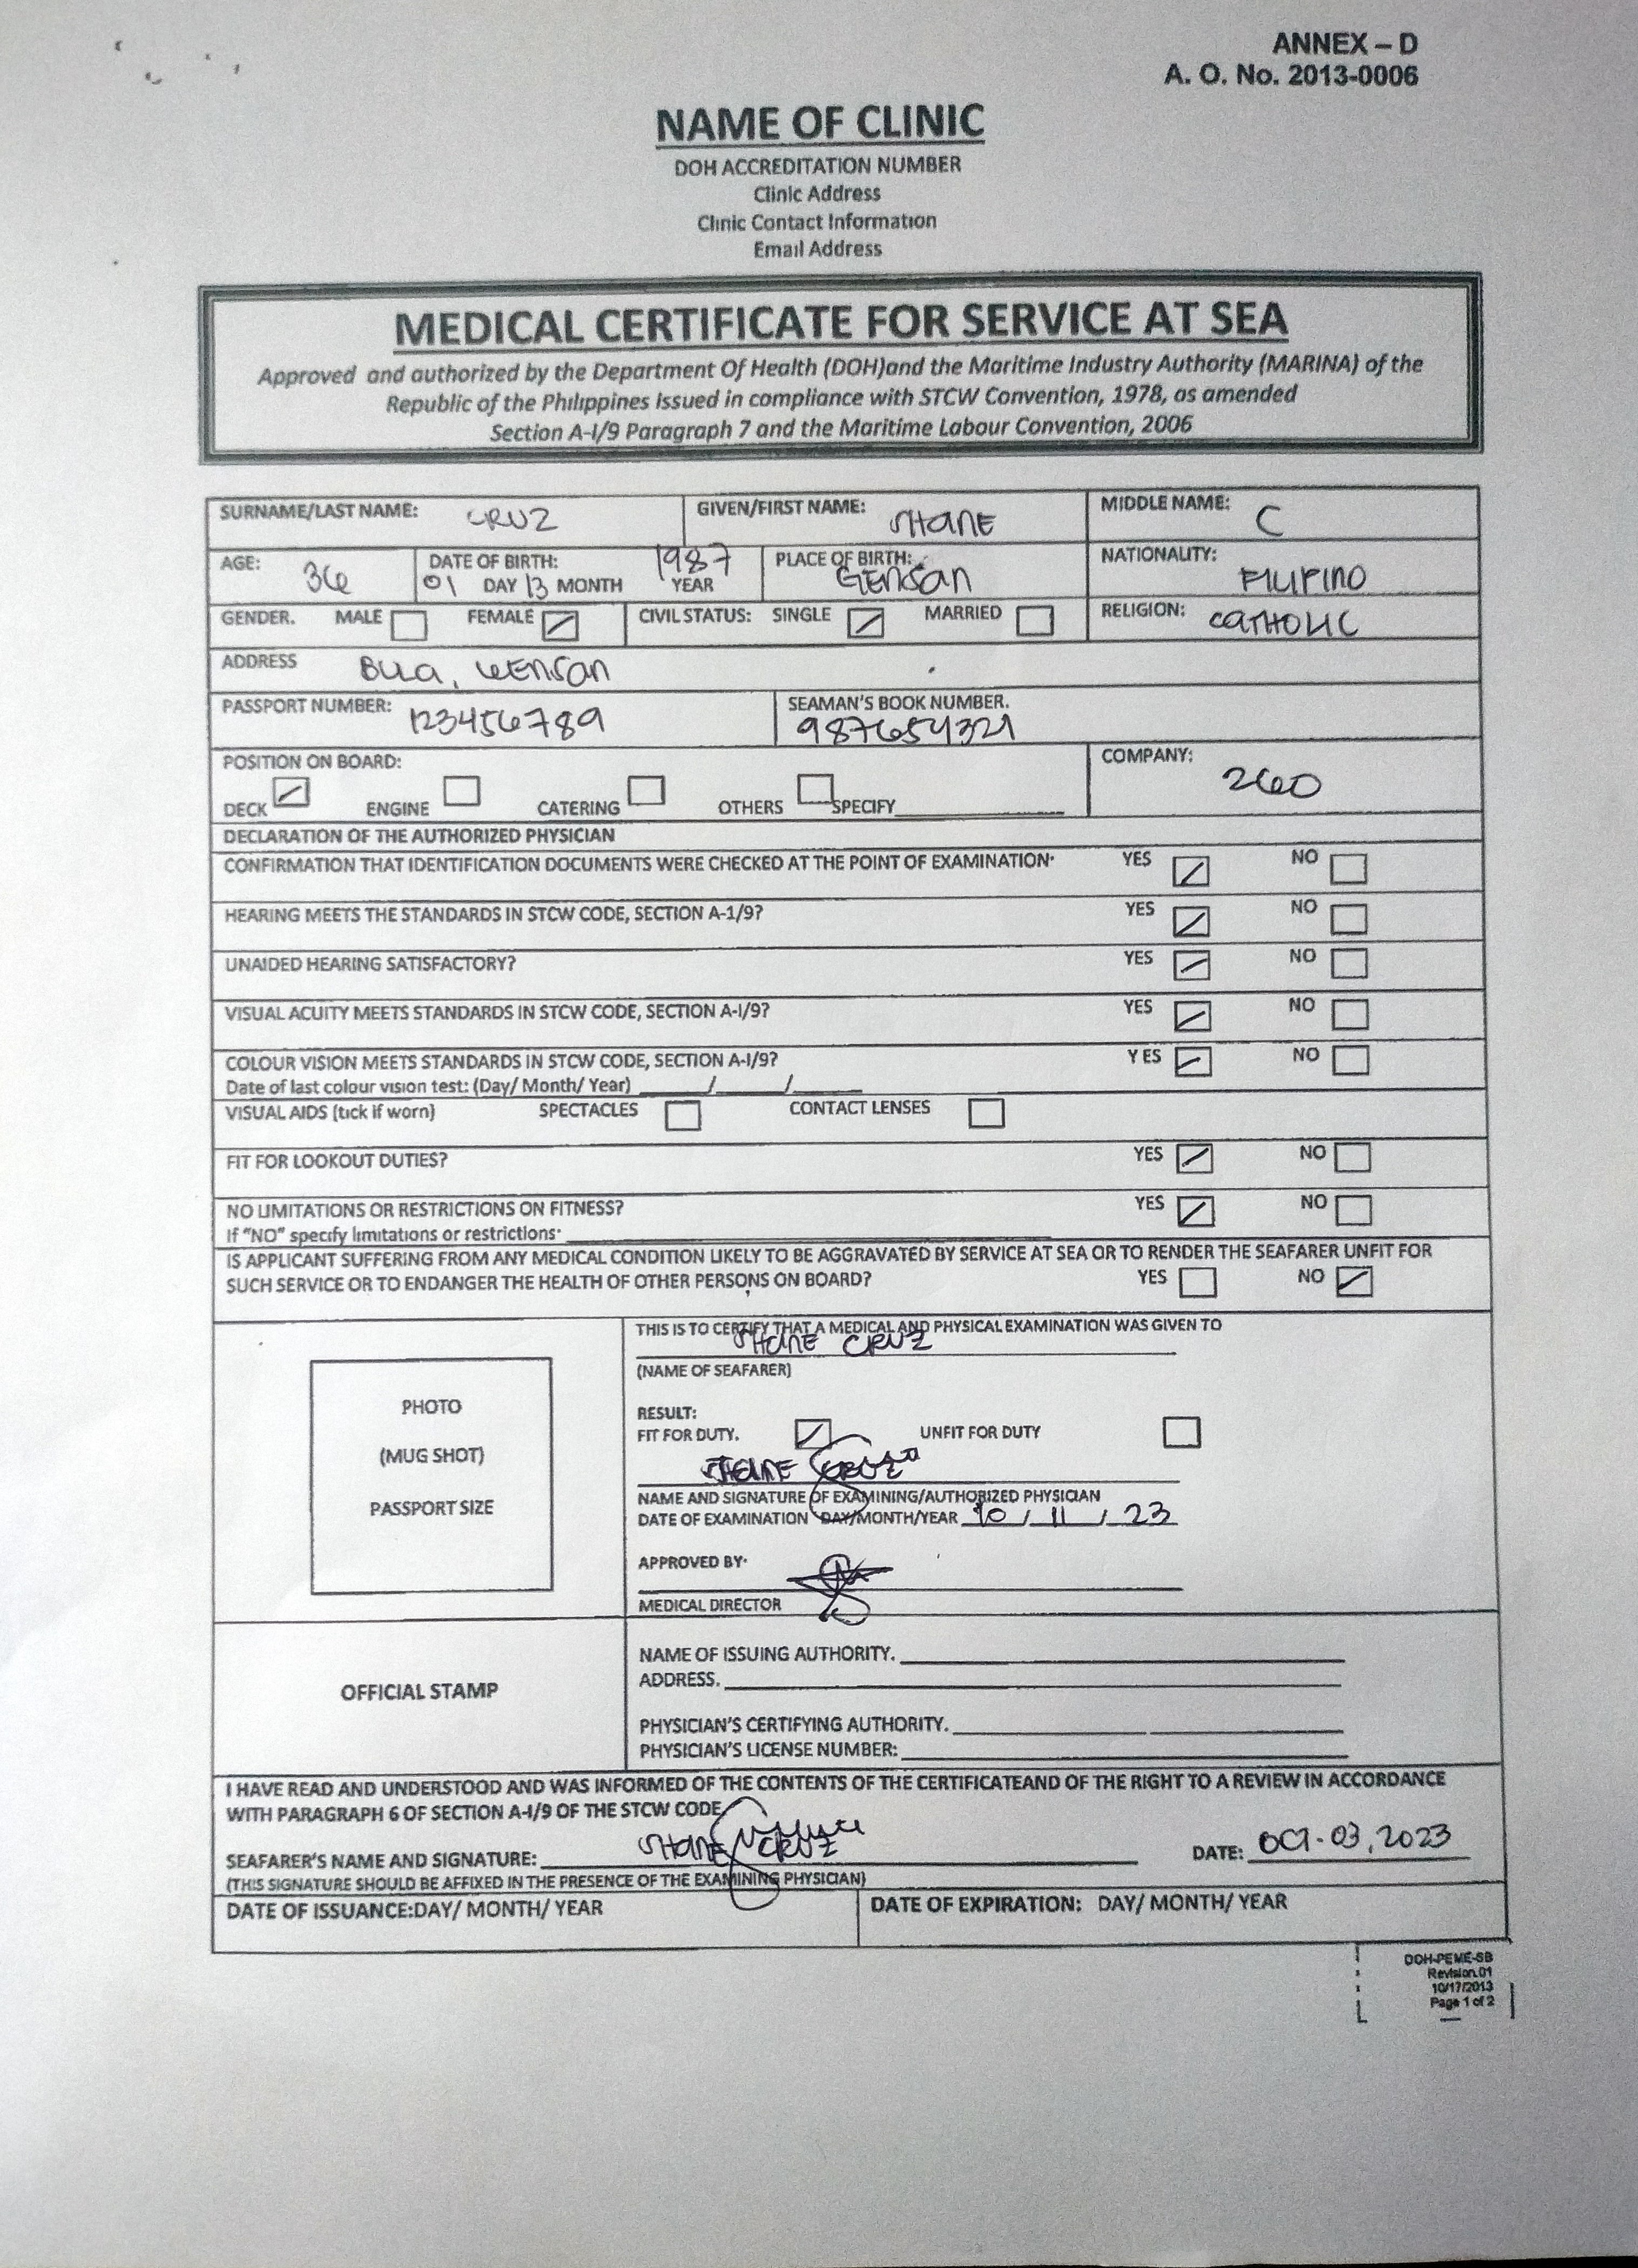 ANNEX – D
A. O. No. 2013-0006
NAME OF CLINIC
DOH ACCREDITATION NUMBER
Clinic Address
Clinic Contact Information
Email Address
MEDICAL CERTIFICATE FOR SERVICE AT SEA
Approved and authorized by the Department Of Health (DOH)and the Maritime Industry Authority (MARINA) of the
Republic of the Philippines Issued in compliance with STCW Convention, 1978, as amended
Section A-I/9 Paragraph 7 and the Maritime Labour Convention, 2006
SURNAME/LAST NAME: CRUZ GIVEN/FIRST NAME: SHANE MIDDLE NAME: C
AGE: 36 DATE OF BIRTH: 01 DAY 13 MONTH 1987 YEAR PLACE OF BIRTH: GENSAN NATIONALITY: FILIPINO
GENDER. MALE FEMALE CIVIL STATUS: SINGLE MARRIED RELIGION: CATHOLIC
ADDRESS BULA, GENSAN
PASSPORT NUMBER: 123456789 SEAMAN'S BOOK NUMBER. 987654321
POSITION ON BOARD: COMPANY: 260
DECK ENGINE CATERING OTHERS SPECIFY
DECLARATION OF THE AUTHORIZED PHYSICIAN
CONFIRMATION THAT IDENTIFICATION DOCUMENTS WERE CHECKED AT THE POINT OF EXAMINATION· YES NO
HEARING MEETS THE STANDARDS IN STCW CODE, SECTION A-1/9? YES NO
UNAIDED HEARING SATISFACTORY? YES NO
VISUAL ACUITY MEETS STANDARDS IN STCW CODE, SECTION A-I/9? YES NO
COLOUR VISION MEETS STANDARDS IN STCW CODE, SECTION A-I/9? YES NO
Date of last colour vision test: (Day/ Month/ Year) ____/____/____
VISUAL AIDS (tick if worn) SPECTACLES CONTACT LENSES
FIT FOR LOOKOUT DUTIES? YES NO
NO LIMITATIONS OR RESTRICTIONS ON FITNESS? YES NO
If "NO" specify limitations or restrictions·
IS APPLICANT SUFFERING FROM ANY MEDICAL CONDITION LIKELY TO BE AGGRAVATED BY SERVICE AT SEA OR TO RENDER THE SEAFARER UNFIT FOR
SUCH SERVICE OR TO ENDANGER THE HEALTH OF OTHER PERSONS ON BOARD? YES NO
PHOTO
(MUG SHOT)
PASSPORT SIZE
THIS IS TO CERTIFY THAT A MEDICAL AND PHYSICAL EXAMINATION WAS GIVEN TO
SHANE CRUZ
(NAME OF SEAFARER)
RESULT:
FIT FOR DUTY. UNFIT FOR DUTY
SHANE CRUZ
NAME AND SIGNATURE OF EXAMINING/AUTHORIZED PHYSICIAN
DATE OF EXAMINATION DAY/MONTH/YEAR 10 / 11 / 23
APPROVED BY·
MEDICAL DIRECTOR
OFFICIAL STAMP
NAME OF ISSUING AUTHORITY.
ADDRESS.
PHYSICIAN'S CERTIFYING AUTHORITY.
PHYSICIAN'S LICENSE NUMBER:
I HAVE READ AND UNDERSTOOD AND WAS INFORMED OF THE CONTENTS OF THE CERTIFICATEAND OF THE RIGHT TO A REVIEW IN ACCORDANCE
WITH PARAGRAPH 6 OF SECTION A-I/9 OF THE STCW CODE
SEAFARER'S NAME AND SIGNATURE: SHANE CRUZ DATE: OCT-03, 2023
(THIS SIGNATURE SHOULD BE AFFIXED IN THE PRESENCE OF THE EXAMINING PHYSICIAN)
DATE OF ISSUANCE:DAY/ MONTH/ YEAR DATE OF EXPIRATION: DAY/ MONTH/ YEAR
DOH-PEME-SB
Revision.01
10/17/2013
Page 1 of 2